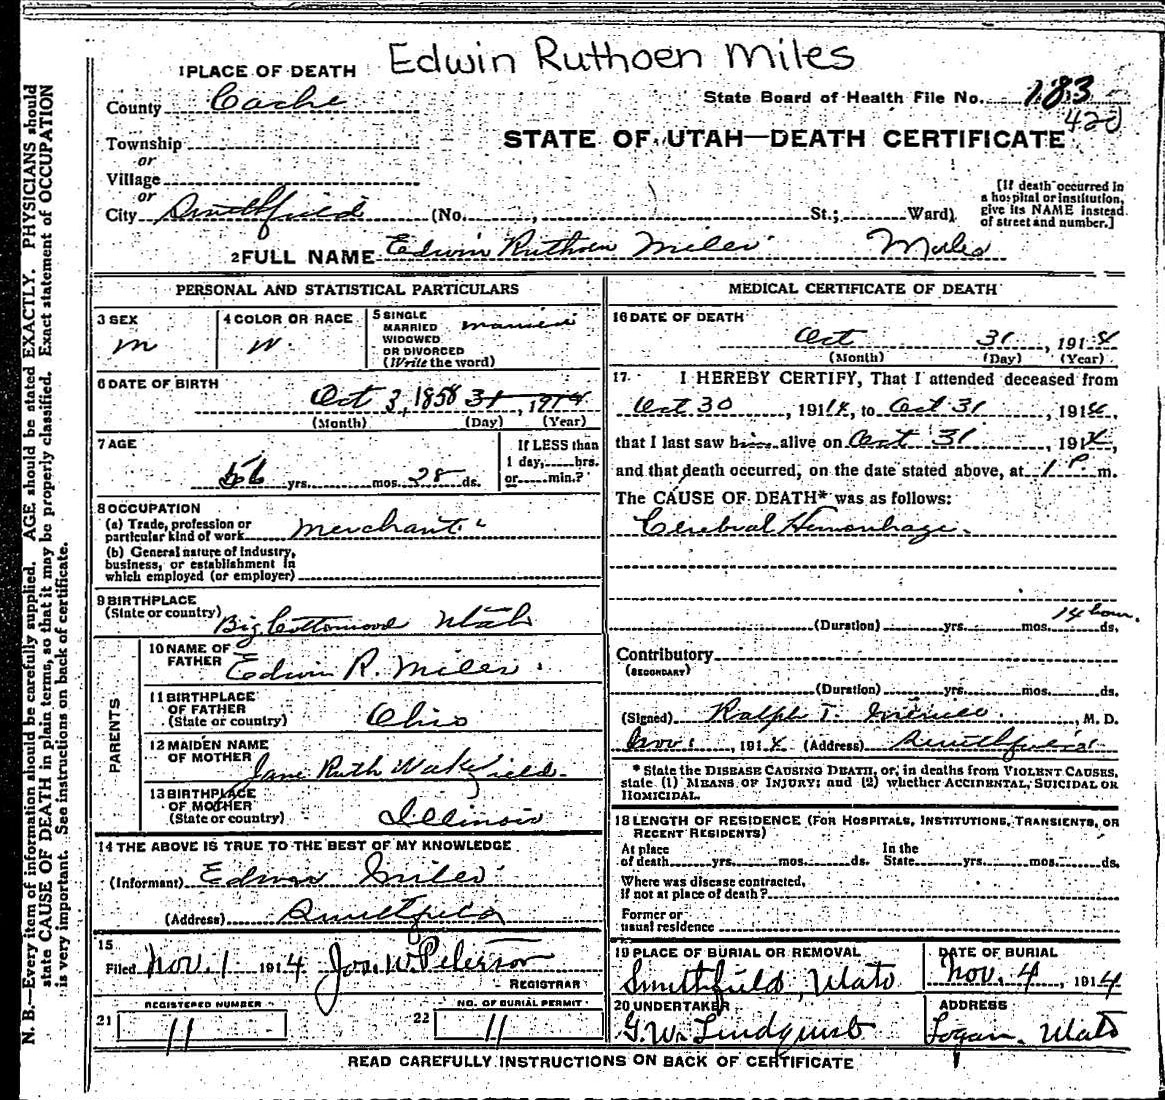 Edwin Ruthoen Miles
1 PLACE OF DEATH
County Cache
State Board of Health File No. 183
420
Township
or
STATE OF UTAH—DEATH CERTIFICATE
Village
or
City Smithfield (No. , St.; Ward)
[If death occurred in
a hospital or institution,
give its NAME instead
of street and number.]
2 FULL NAME Edwin Ruthoen Miles Miles
PERSONAL AND STATISTICAL PARTICULARS
3 SEX
M
4 COLOR OR RACE
W.
5 SINGLE
MARRIED
WIDOWED
OR DIVORCED
(Write the word)
married
6 DATE OF BIRTH
Oct 3, 1858 31, 1914
(Month) (Day) (Year)
7 AGE
56 yrs. mos. 28 ds.
If LESS than
1 day, hrs.
or min.?
8 OCCUPATION
(a) Trade, profession or
particular kind of work Merchant
(b) General nature of Industry,
business, or establishment in
which employed (or employer)
9 BIRTHPLACE
(State or country) Big Cottonwood Utah
PARENTS
10 NAME OF
FATHER Edwin R. Miles
11 BIRTHPLACE
OF FATHER
(State or country) Ohio
12 MAIDEN NAME
OF MOTHER Jane Ruth Wakefield
13 BIRTHPLACE
OF MOTHER
(State or country) Illinois
14 THE ABOVE IS TRUE TO THE BEST OF MY KNOWLEDGE
(Informant) Edwin Miles
(Address) Smithfield
15
Filed Nov. 1 1914 Jos. W. Peterson
REGISTRAR
REGISTERED NUMBER
21 11
NO. OF BURIAL PERMIT
22 11
MEDICAL CERTIFICATE OF DEATH
16 DATE OF DEATH
Oct 31, 1914
(Month) (Day) (Year)
17. I HEREBY CERTIFY, That I attended deceased from
Oct 30, 1914, to Oct 31, 1914,
that I last saw him alive on Oct 31, 1914,
and that death occurred, on the date stated above, at 1 P m.
The CAUSE OF DEATH* was as follows:
Cerebral Hemorrhage.
14 hour.
(Duration) yrs. mos. ds.
Contributory
(SECONDARY)
(Duration) yrs. mos. ds.
(Signed) Ralph T. , M. D.
Nov 1, 1914 (Address) Smithfield
* State the DISEASE CAUSING DEATH, or, in deaths from VIOLENT CAUSES,
state (1) MEANS OF INJURY; and (2) whether ACCIDENTAL, SUICIDAL OR
HOMICIDAL.
18 LENGTH OF RESIDENCE (FOR HOSPITALS, INSTITUTIONS, TRANSIENTS, OR
RECENT RESIDENTS)
At place
of death yrs. mos. ds.
In the
State yrs. mos. ds.
Where was disease contracted,
if not at place of death?
Former or
usual residence
19 PLACE OF BURIAL OR REMOVAL
Smithfield, Utah
DATE OF BURIAL
Nov. 4, 1914
20 UNDERTAKER
G. W. Lindquist
ADDRESS
Logan, Utah
READ CAREFULLY INSTRUCTIONS ON BACK OF CERTIFICATE
N. B.—Every item of information should be carefully supplied. AGE should be stated EXACTLY. PHYSICIANS should
state CAUSE OF DEATH in plain terms, so that it may be properly classified. Exact statement of OCCUPATION
is very important. See instructions on back of certificate.